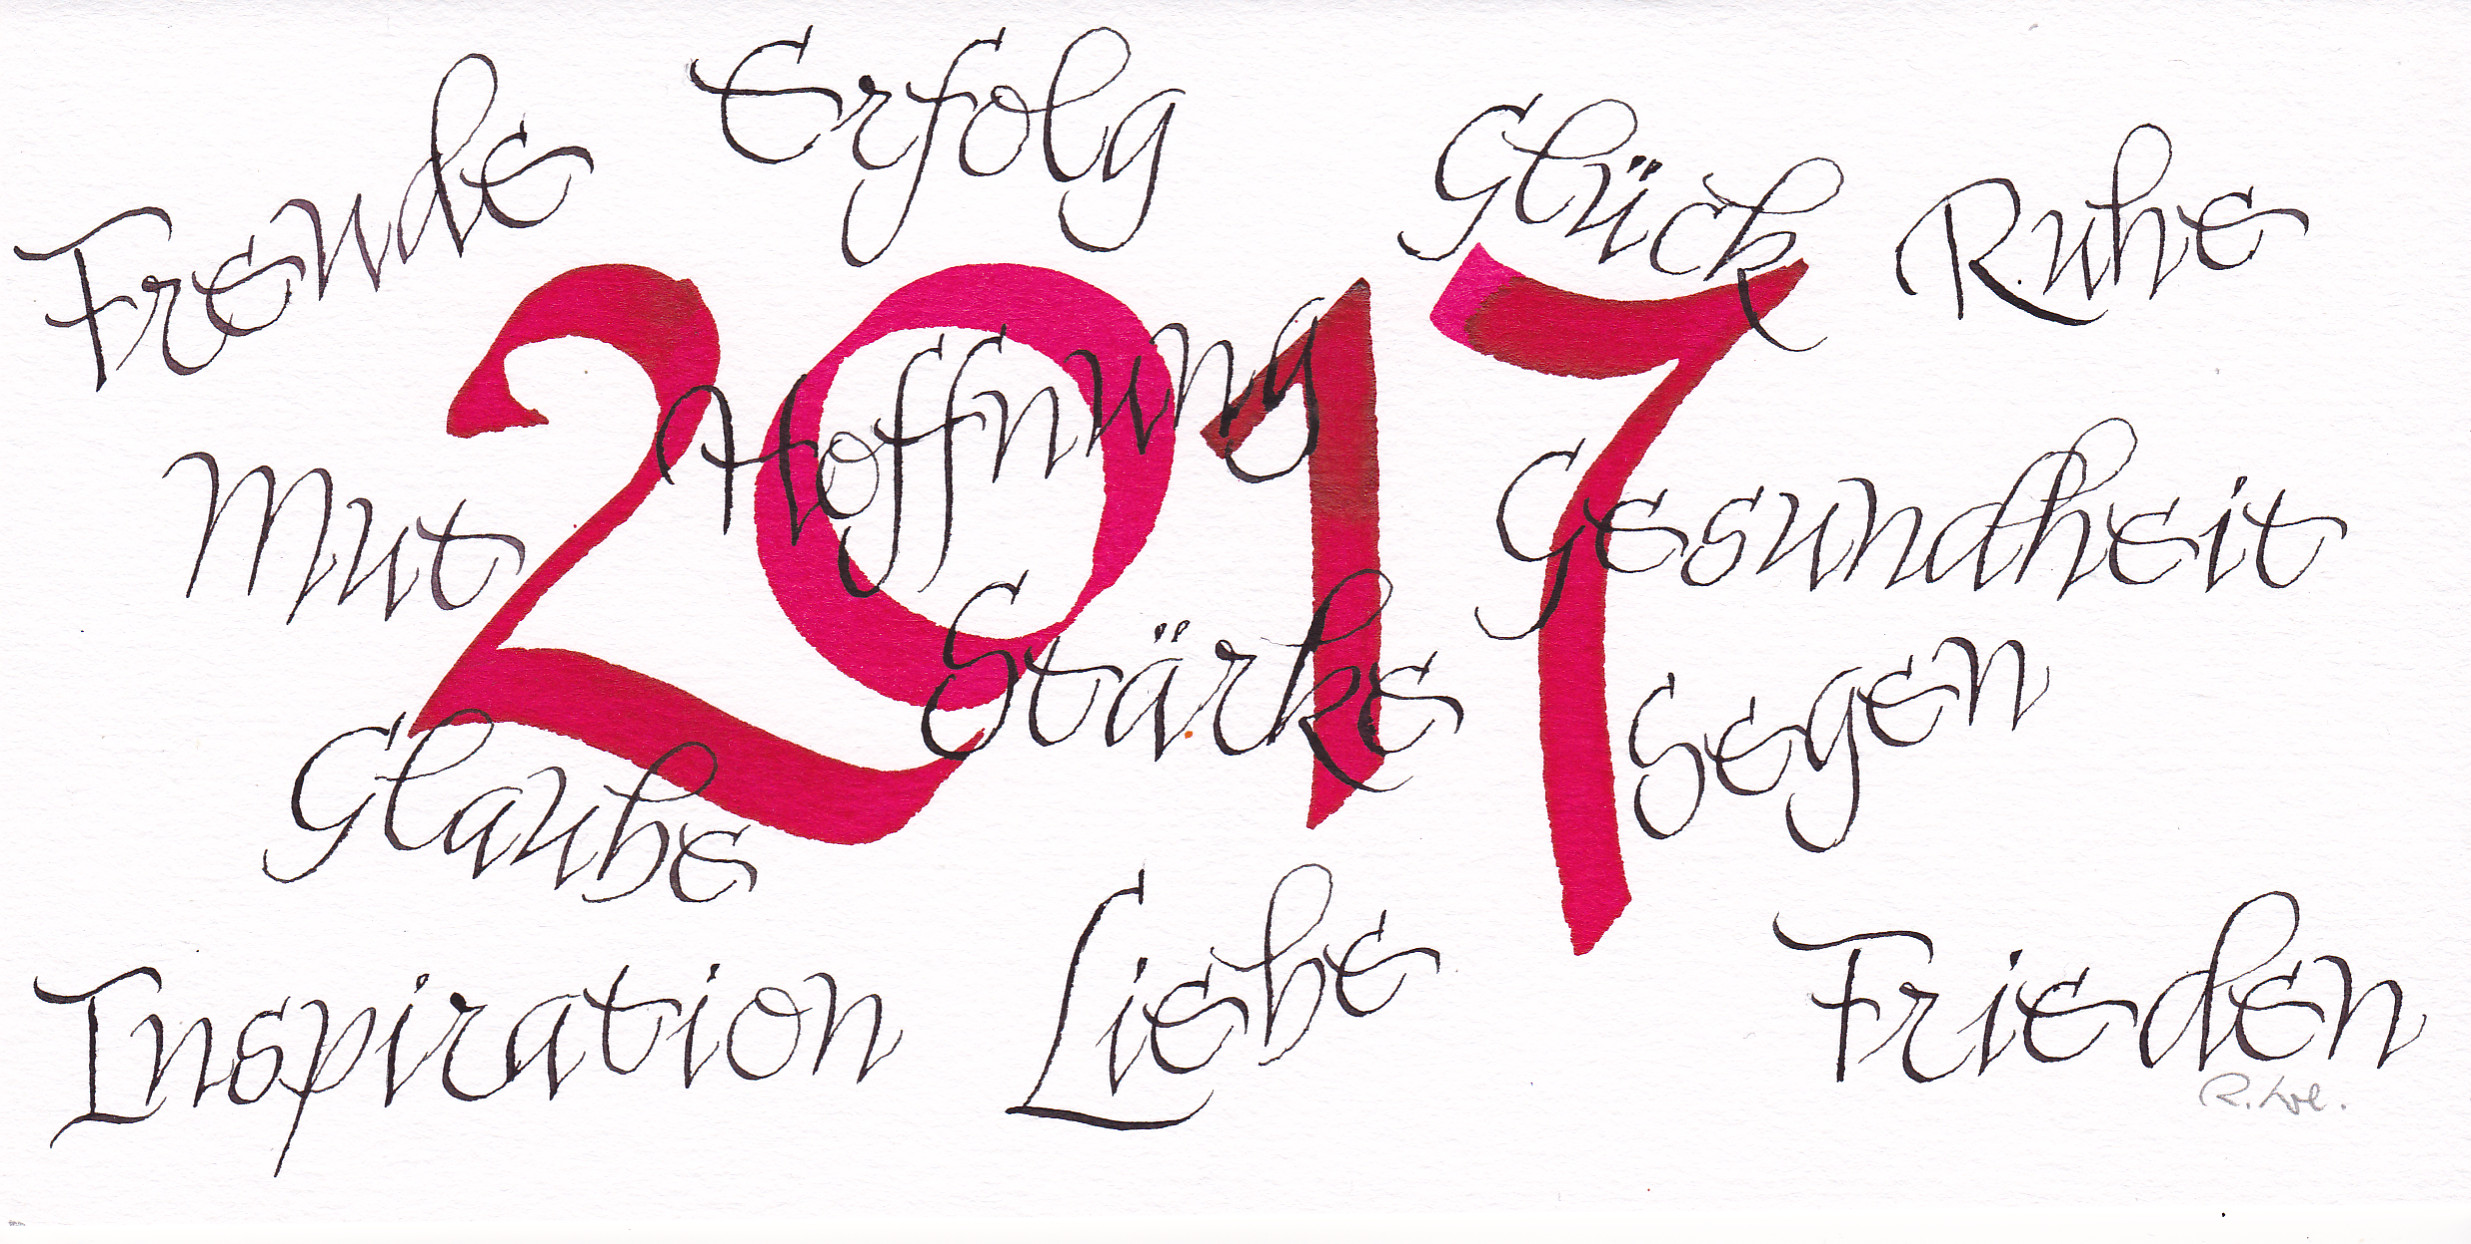 Freude Erfolg Glück Ruhe
2017
Mut Hoffnung Gesundheit
Glaube Stärke Segen
Inspiration Liebe Frieden